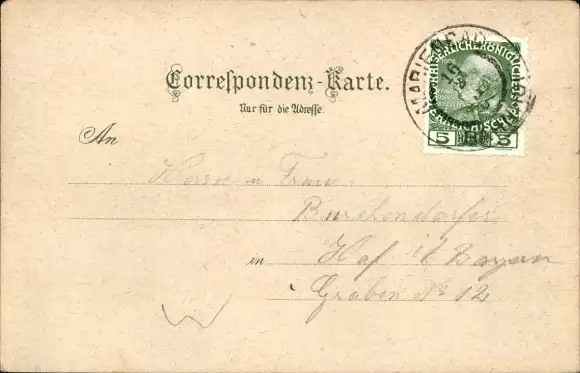 Correspondenz-Karte.
Nur für die Adresse.
MARIENBAD
KAISERLICHE KÖNIGLICHE
5 5
An
Herrn u Frau
Burchendorfer
in Hof i/ Bayern
Graben No 12